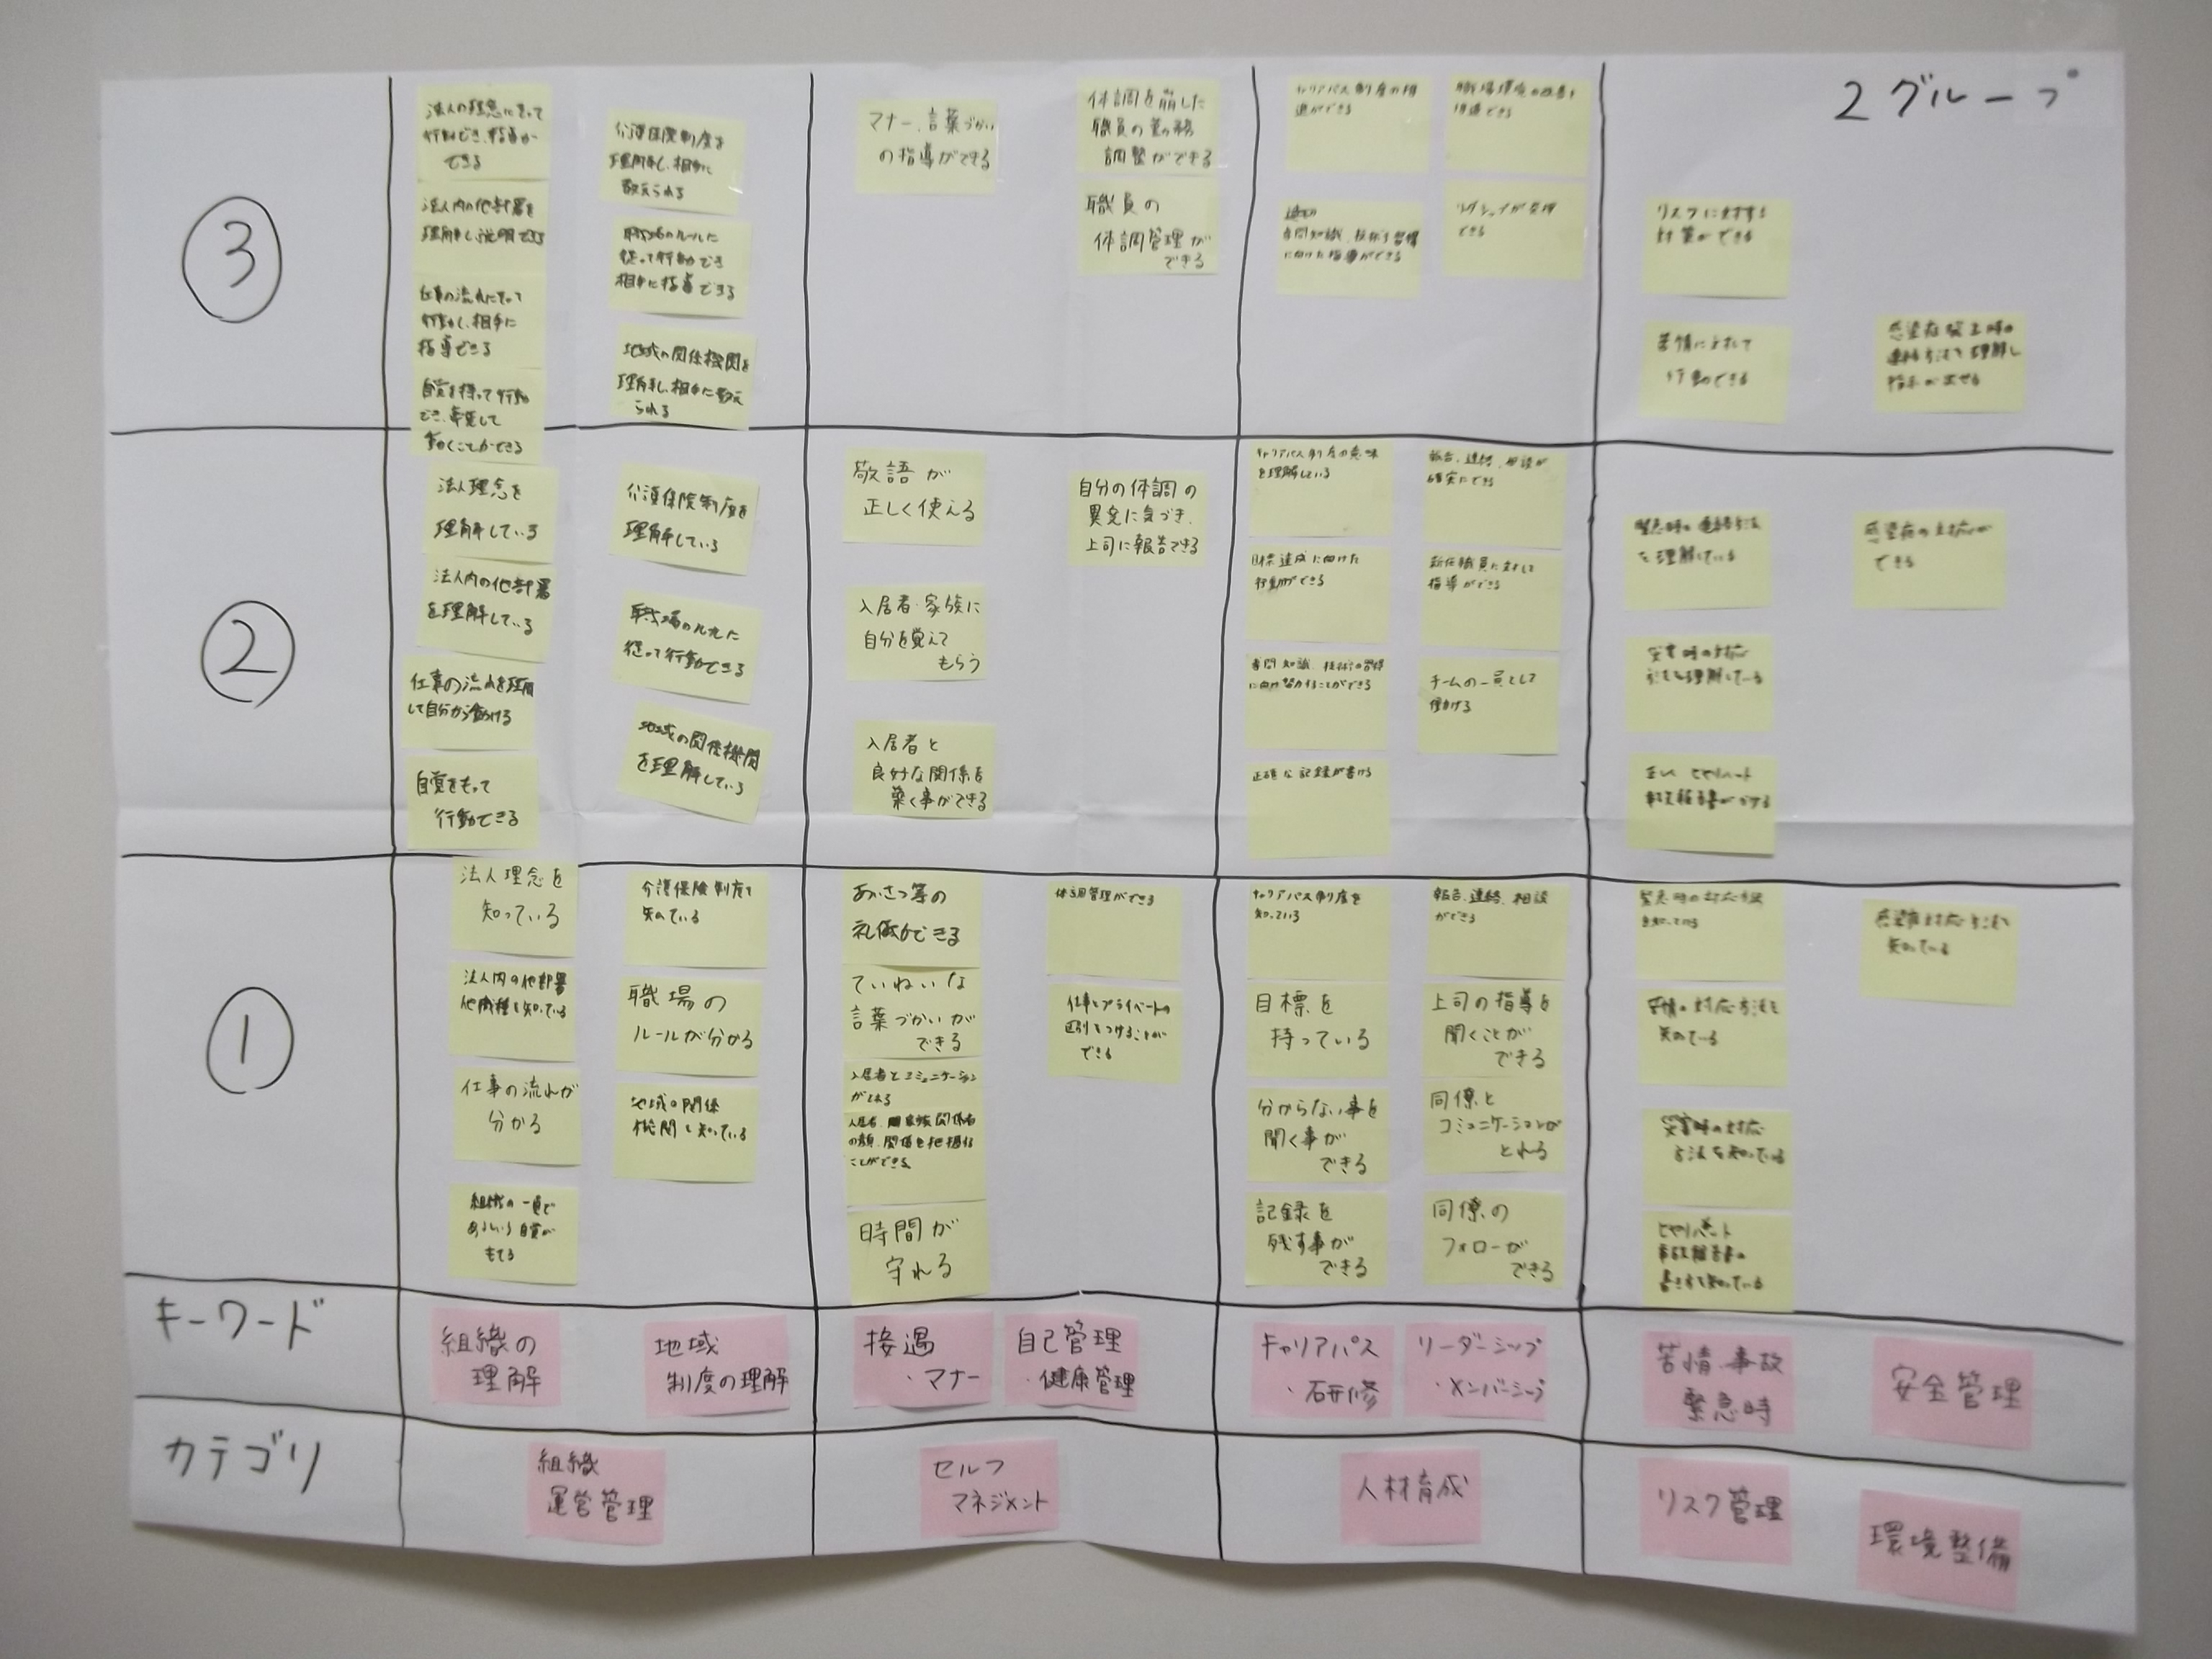 2グループ
③
法人の理念にそって
行動でき、指導が
できる
法人内の他部署を
理解し、説明できる
仕事の流れにそって
行動し、相手に
指導できる
自覚を持って行動
でき、率先して
動くことができる
介護保険制度を
理解し、相手に
教えられる
職場のルールに
従って行動でき
相手に指導できる
地域の関係機関を
理解し、相手に教え
られる
マナー、言葉づかい
の指導ができる
体調を崩した
職員の業務
調整ができる
職員の
体調管理が
できる
キャリアパス制度の推
進ができる
職場環境の改善を
推進できる
専門知識、技術の習得
に向けた指導ができる
リーダーシップが発揮
できる
リスクに対する
対策ができる
苦情に対して
行動できる
感染症発生時の
連絡方法を理解し
指示が出せる
②
法人理念を
理解している
法人内の他部署
を理解している
仕事の流れを理解
して自分から動ける
自覚をもって
行動できる
介護保険制度を
理解している
職場のルールに
従って行動できる
地域の関係機関
を理解している
敬語が
正しく使える
入居者・家族に
自分を覚えて
もらう
入居者と
良好な関係を
築く事ができる
自分の体調の
異変に気づき、
上司に報告できる
キャリアパス制度の意味
を理解している
目標達成に向けた
行動ができる
専門知識、技術の習得
に向け努力することができる
正確な記録が書ける
報告、連絡、相談が
確実にできる
新任職員に対して
指導ができる
チームの一員として
働ける
緊急時の連絡方法
を理解している
災害時の対応
方法を理解している
正しくヒヤリハット
事故報告書がかける
感染症の対応が
できる
①
法人理念を
知っている
法人内の他部署
他職種を知っている
仕事の流れが
分かる
組織の一員で
あるという自覚が
もてる
介護保険制度を
知っている
職場の
ルールが分かる
地域の関係
機関を知っている
あいさつ等の
礼儀ができる
ていねいな
言葉づかいが
できる
入居者とコミュニケーション
がとれる
入居者、家族関係者
の顔、関係を把握する
ことができる
時間が
守れる
体調管理ができる
仕事とプライベートの
区別をつけることが
できる
キャリアパス制度を
知っている
目標を
持っている
分からない事を
聞く事が
できる
記録を
残す事が
できる
報告、連絡、相談
ができる
上司の指導を
聞くことが
できる
同僚と
コミュニケーションが
とれる
同僚の
フォローが
できる
緊急時の対応方法
を知っている
苦情の対応方法を
知っている
災害時の対応
方法を知っている
ヒヤリハット
事故報告書の
書き方を知っている
感染症対応方法を
知っている
キーワード
組織の
理解
地域
制度の理解
接遇
・マナー
自己管理
・健康管理
キャリアパス
・研修
リーダーシップ
・メンバーシップ
苦情・事故
緊急時
安全管理
カテゴリ
組織
運営管理
セルフ
マネジメント
人材育成
リスク管理
環境整備